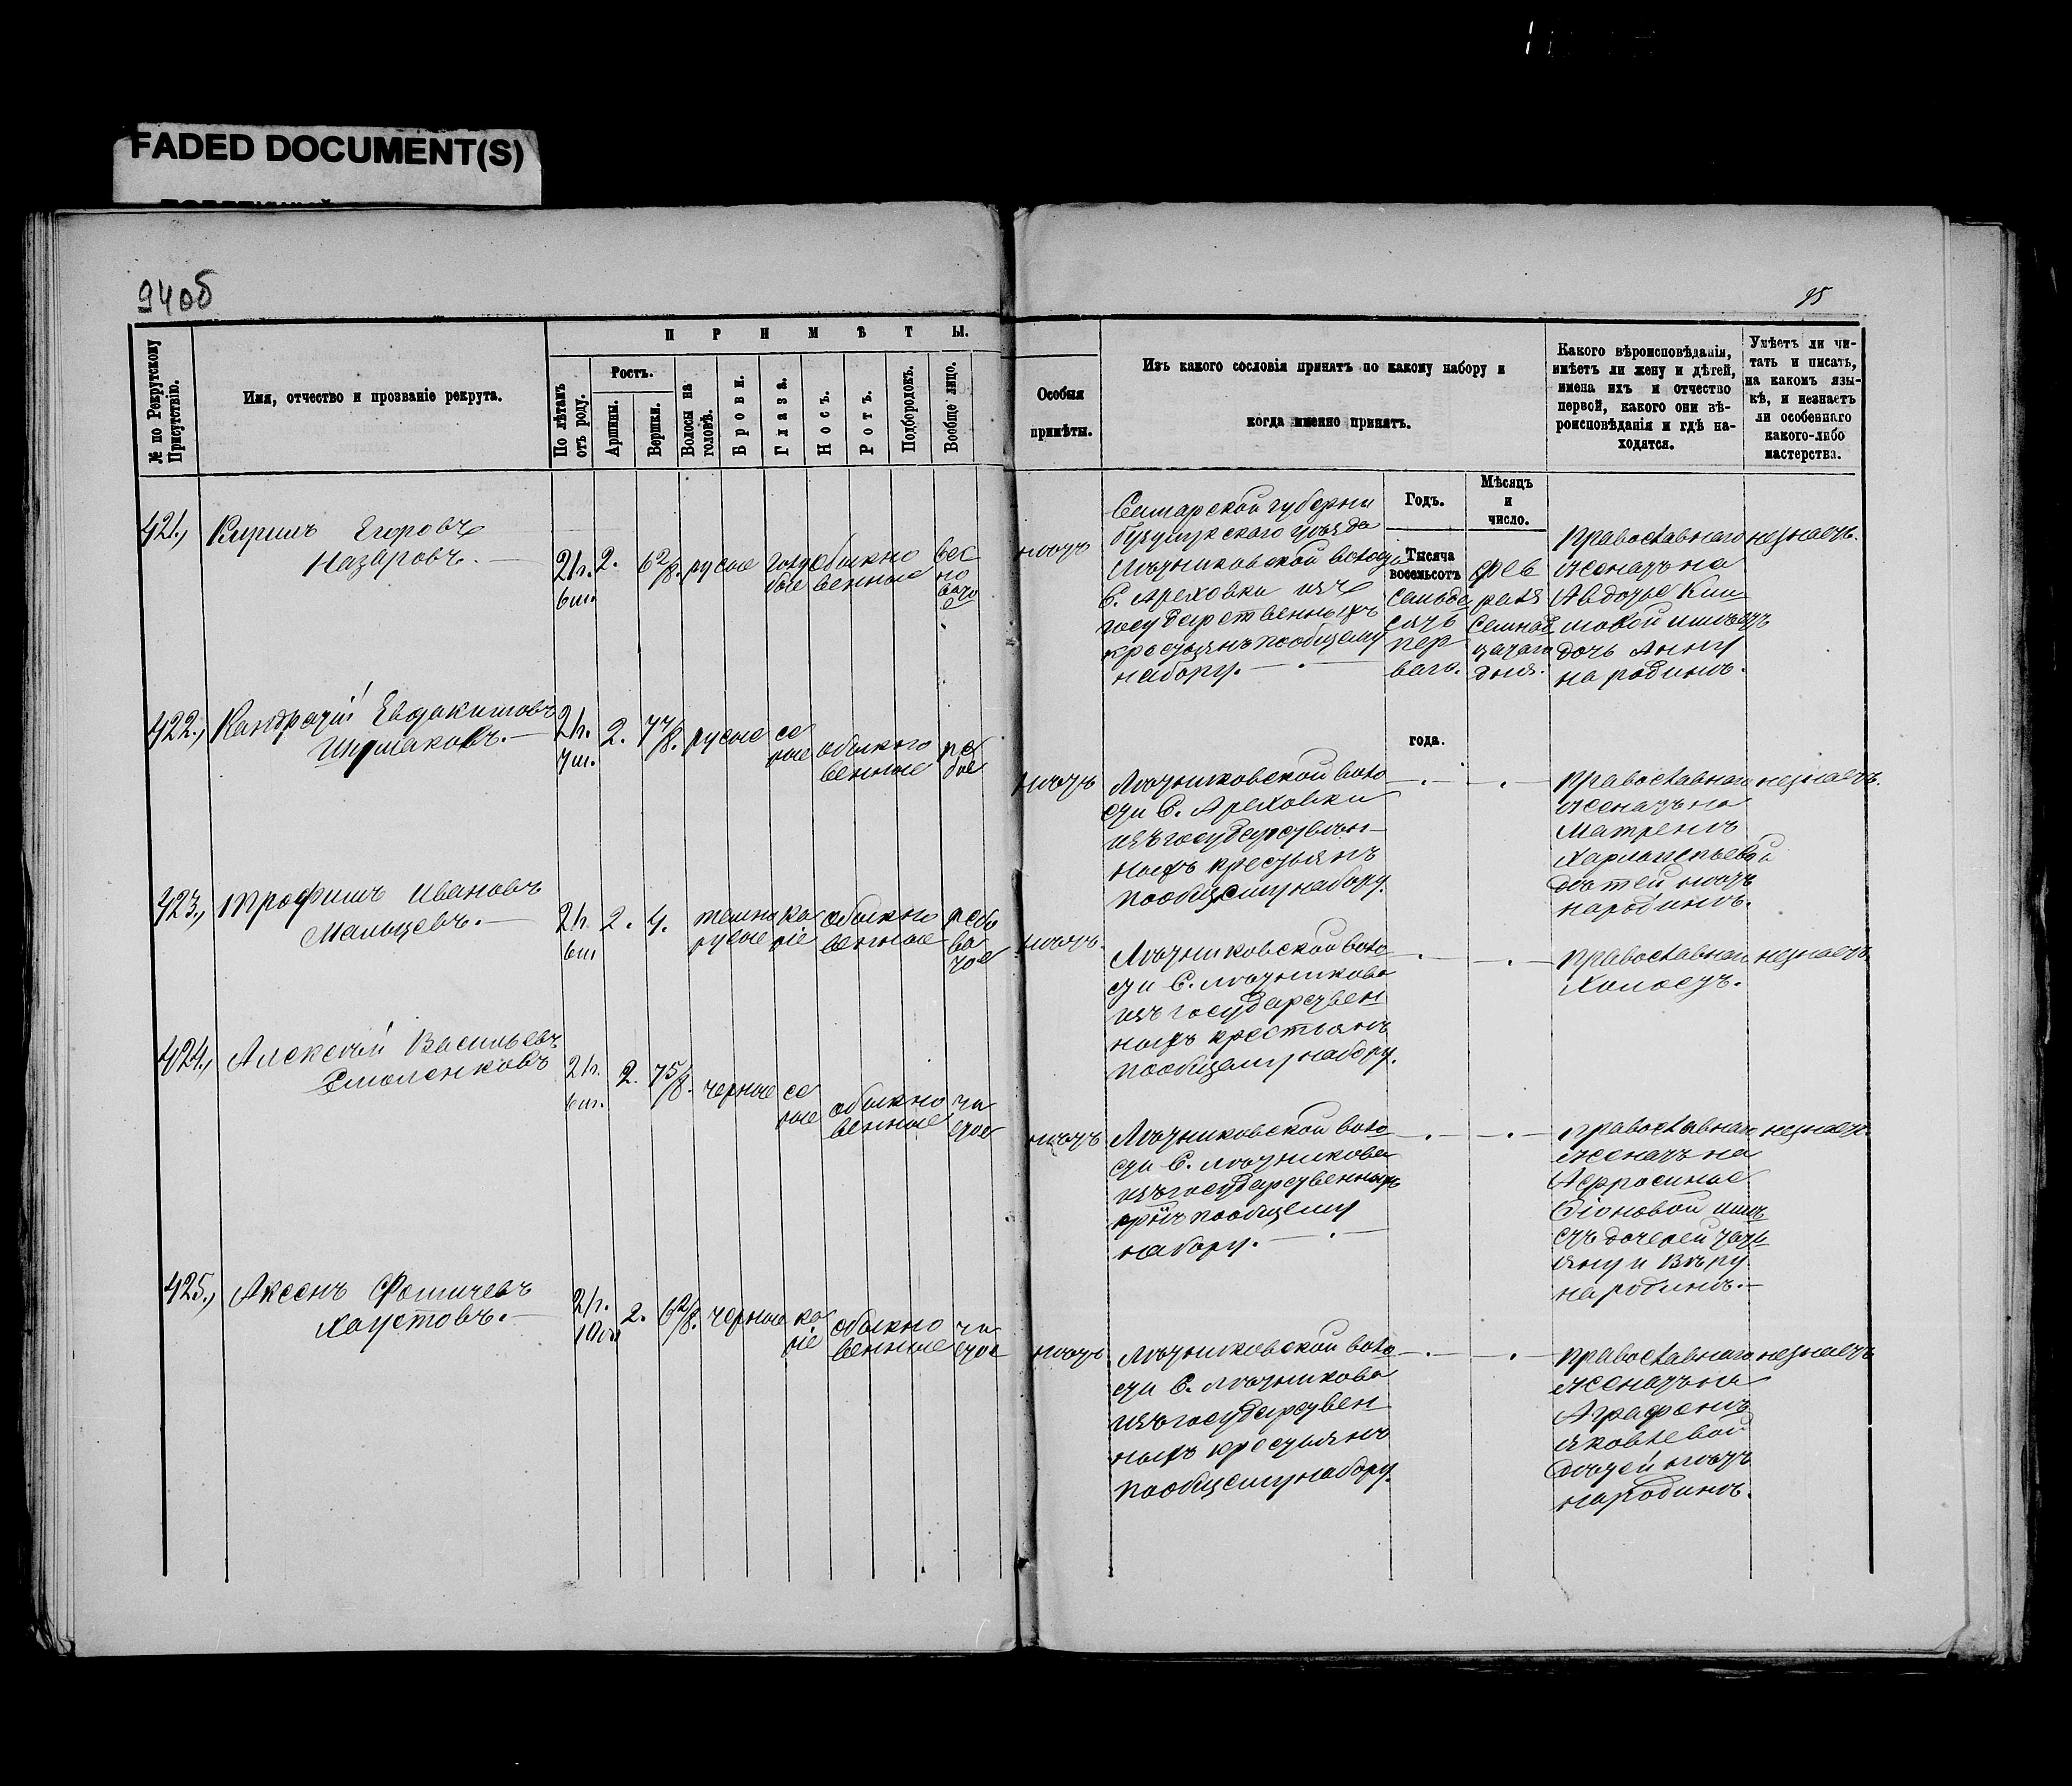 FADED DOCUMENT(S)
94об
95
№ по Рекрутскому Присутствію.
Имя, отчество и прозваніе рекрута.
ПРИМѢТЫ.
По лѣтамъ отъ роду.
Ростъ.
Аршины.
Вершки.
Волосы на головѣ.
Брови.
Глаза.
Носъ.
Ротъ.
Подбородокъ.
Вообще лицо.
Особыя
примѣты.
Изъ какого сословія принятъ по какому набору и
когда именно принятъ.
Какого вѣроисповѣданія,
имѣетъ ли жену и дѣтей,
имена ихъ и отчество
первой, какого они вѣ-
роисповѣданія и гдѣ на-
ходятся.
Умѣетъ ли чи-
тать и писать,
на какомъ язы-
кѣ, и незнаетъ
ли особеннаго
какого-либо
мастерства.
Годъ.
Мѣсяцъ
и
число.
421., Кирилъ Егоровъ
Назаровъ.
21г.
6м.
2.
6 2/8.
русые
голу
бые
обыкно
венные
вес
но
вато
е
нѣтъ
Самарской губерни
бузулукскаго уѣзда
С. Ареховки изъ
государственныхъ
крестьянъ пообщему
набору.
Тысяча
восемьсотъ
семьде
сятъ
пер
ваго.
года.
фев
раля
семнад
цатаго
дня.
православнаго
женатъ на
Авдотье Кли
мовой имѣетъ
дочь Анну
на родинѣ.
незнаетъ.
422., Кандратій Евдакимовъ
21г.
7м.
2.
7 7/8.
русые
се
рые
обыкно
венные
ре
бое
нѣтъ
сти С. Ареховки
изъ государствен
ныхъ крестьянъ
пообщему набору.
православнаго
женатъ на
Матренѣ
дѣтей нѣтъ
народинѣ.
незнаетъ.
423., Трофимъ Ивановъ
Мальцевъ.
21г.
6м
2.
4.
темно
русые
ка
ріе
обыкно
венные
ребо
ва
тое
нѣтъ.
изъ государствен
ныхъ крестьянъ
пообщему набору.
православнаго
Холостъ.
незнаетъ
424., Алексѣй Васильевъ
Смоленковъ
21г.
6м.
2.
7 5/8.
черные
се
рые
обыкно
венные
чи
стое
нѣтъ
изъ государственныхъ
пообщему
набору.
православнаго
женатъ на
сетъ дочерей Тать
яну и Вѣру
народинѣ.
незнаетъ.
425., Аксенъ Фомичевъ
Хаустовъ.
21г.
10м
2.
6 2/8.
черные
ка
ріе
обыкно
венные
чи
стое
нѣтъ
изъ государствен
ныхъ крестьянъ
пообщему набору.
православнаго
женатъ на
Аграфенѣ
Яковлевой
дѣтей нѣтъ
народинѣ.
незнаетъ